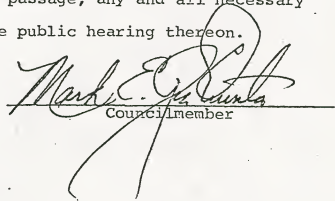 passage, any and all necessary
e public hearing thereon.
Mark E. GiaQuinta
Councilmember